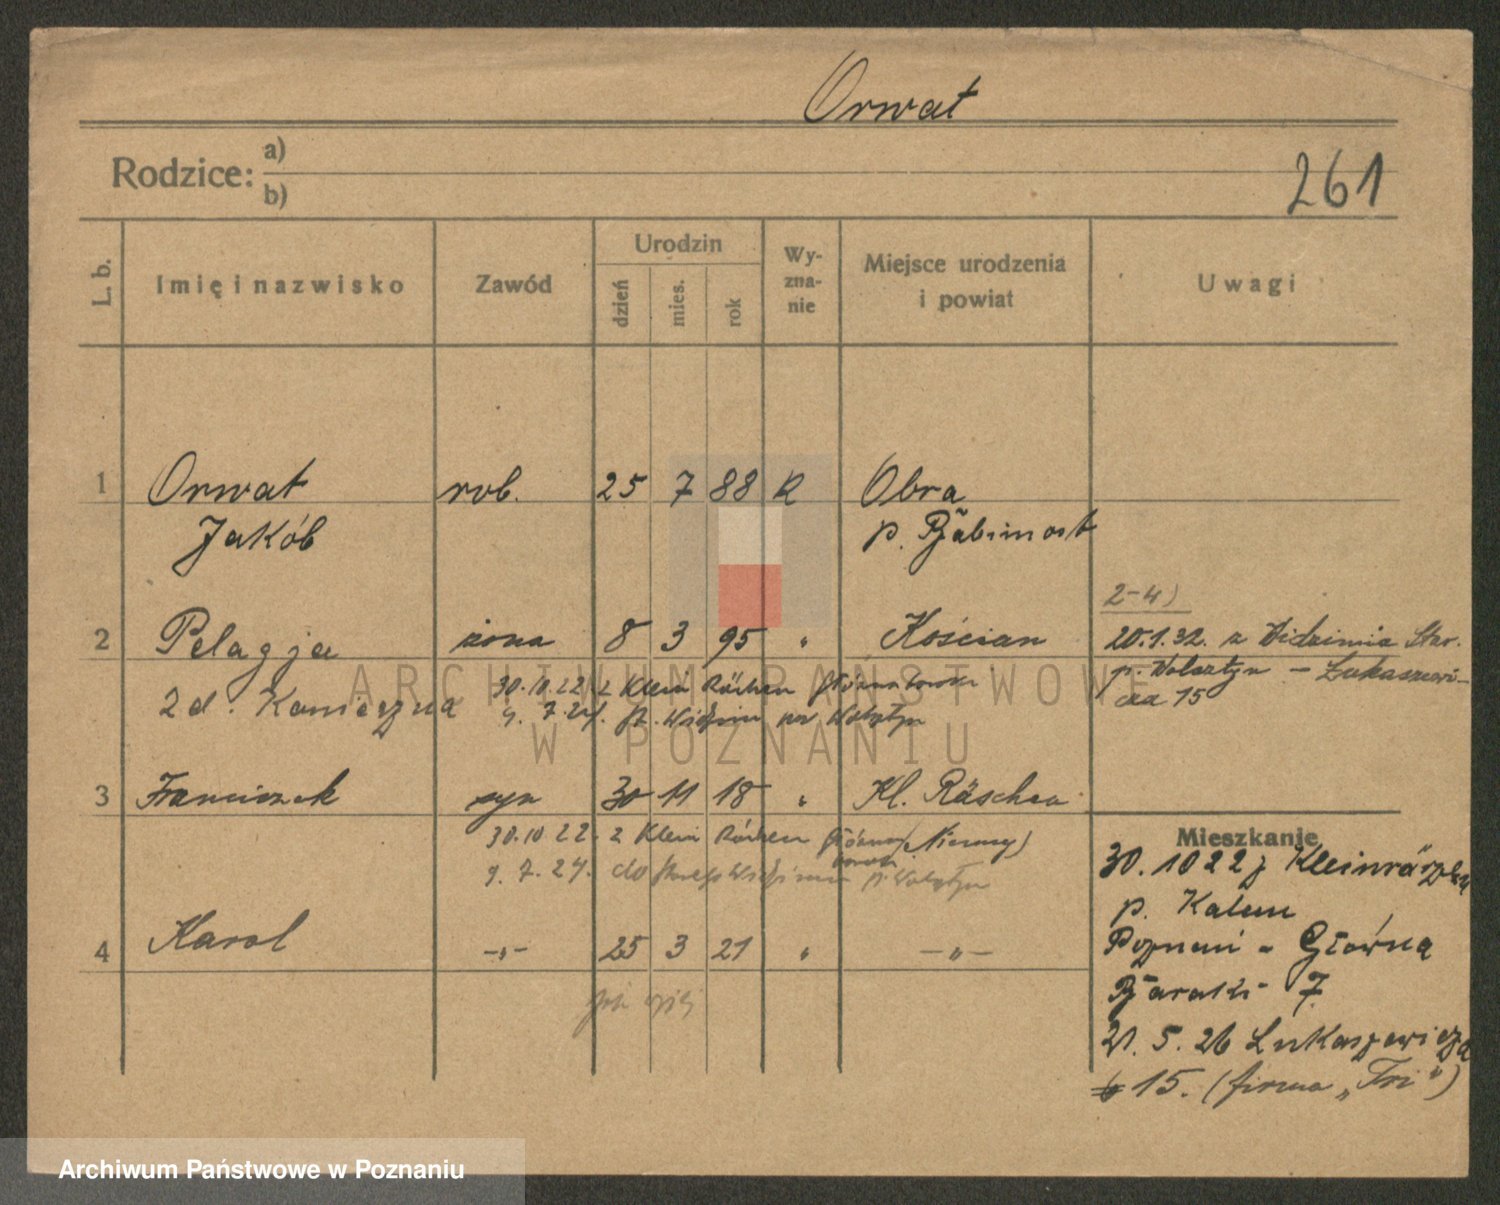 Orwat
Rodzice: a)
b)
261
L. b.
Imię i nazwisko
Zawód
Urodzin
dzień
mies.
rok
Wy-
zna-
nie
Miejsce urodzenia
i powiat
Uwagi
1 Orwat rob. 25 7 88 K Obra
Jakób p. Babimost
2-4)
2 Pelagja żona 8 3 95 " Kościan 20.1.32. z Widzimia Star.
p. Wolsztyn - Łukaszewi-
cza 15
ARCHIWUM PAŃSTWOWE
W POZNANIU
zd. Konieczna 30.10.22. z Klein Räschen
9. 7. 24. Wolsztyn
3 Franciszek syn 30 11 18 " Kl. Räschen
30.10 22. z Klein Räschen (Niemcy)
9. 7. 24. do p. Wolsztyn
4 Karol -"- 25 3 21 " -"-
Mieszkanie
30. 10 22 z Kleinräschen
p. Kalau
Poznań - Główna
Baraki 7
21. 5. 26 Łukaszewicza
15. (firma „Tri")
Archiwum Państwowe w Poznaniu